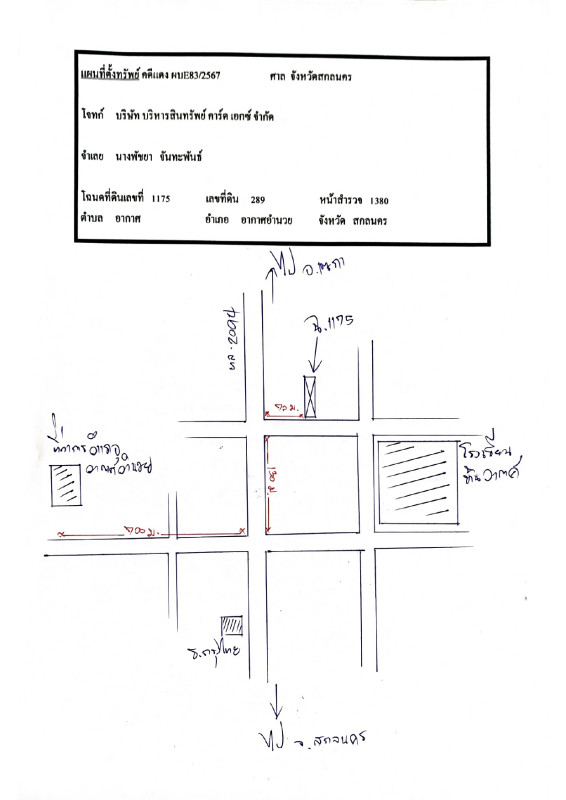 แผนที่ตั้งทรัพย์ คดีแดง ผบE83/2567 ศาล จังหวัดสกลนคร
โจทก์ บริษัท บริหารสินทรัพย์ คาร์ด เอกซ์ จำกัด
จำเลย นางพัชยา จันทะพันธ์
โฉนดที่ดินเลขที่ 1175 เลขที่ดิน 289 หน้าสำรวจ 1380
ตำบล อากาศ อำเภอ อากาศอำนวย จังหวัด สกลนคร
ไป อ.เซกา
ฉ.1175
ทล.2094
70 ม.
ที่ว่าการอำเภอ
อากาศอำนวย
โรงเรียน
150 ม.
700 ม.
ธ.กรุงไทย
ไป จ.สกลนคร